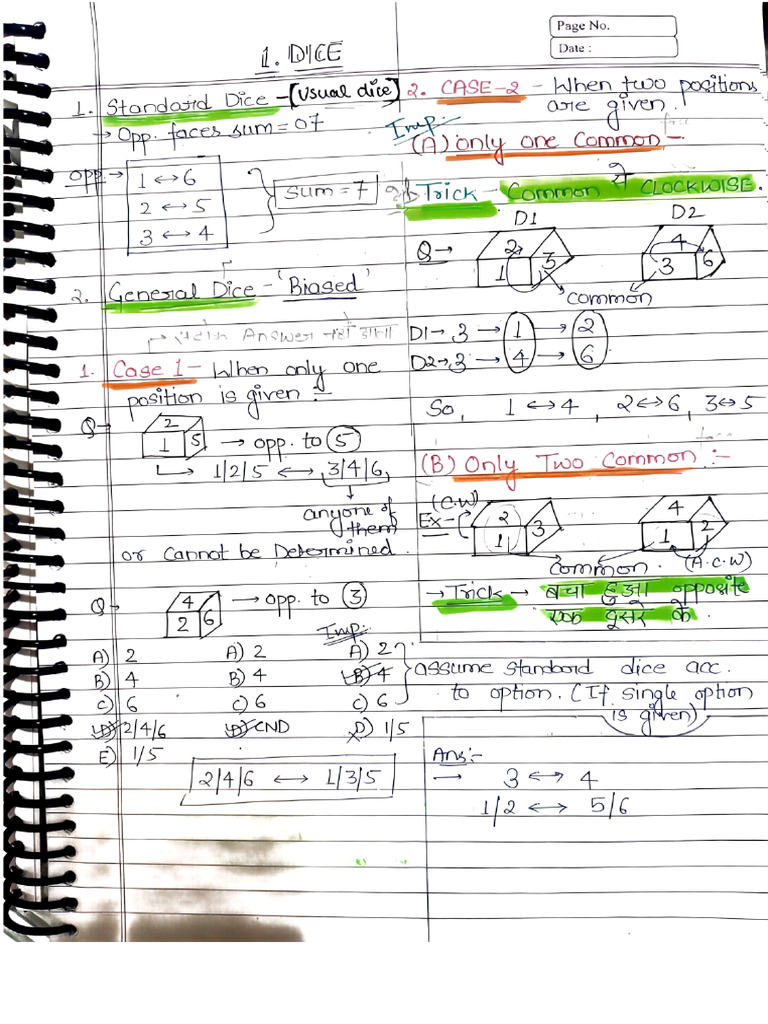 Page No.
Date :
1. DICE
1. Standard Dice - (Usual dice)
→ Opp. faces sum = 07
opp. → 1 ↔ 6
2 ↔ 5
3 ↔ 4
sum = 7
2. General Dice - 'Biased'
Answer नहीं आता
1. Case 1 - When only one
position is given :-
Q →
2
1 5 → opp. to 5
↳ 1/2/5 ↔ 3/4/6,
↓
anyone of
them
or Cannot be Determined.
Q →
4
2 6 → opp. to 3
Imp:
A) 2 A) 2 A) 2
B) 4 B) 4 B) 4
C) 6 C) 6 C) 6
D) 2/4/6 D) CND D) 1/5
E) 1/5
2/4/6 ↔ 1/3/5
2. CASE-2 - When two positions
are given.
Imp.
(A) Only one Common -
Trick - Common से CLOCKWISE.
D1 D2
Q →
2 4
1 3 3 6
common
D1 → 3 → 1 → 2
D2 → 3 → 4 → 6
So, 1 ↔ 4, 2 ↔ 6, 3 ↔ 5
(B) Only Two Common :-
(C.W)
Ex →
2 4
1 3 1 2
common. (A.C.W)
→ Trick → बचा हुआ opposite
एक दूसरे के.
assume standard dice acc.
to option. (If single option
is given)
Ans :-
→ 3 ↔ 4
1/2 ↔ 5/6